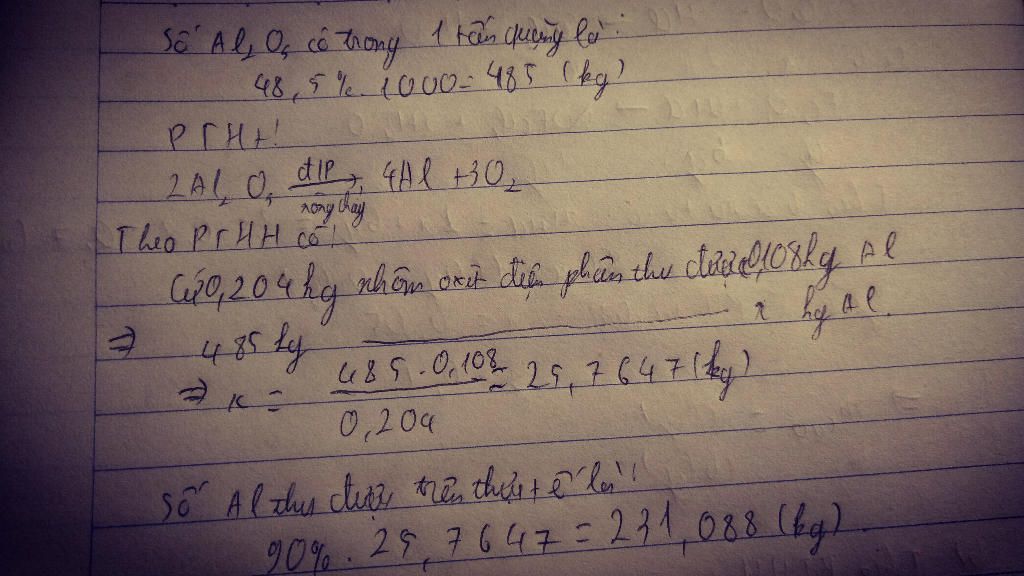 Số Al₂O₃ có trong 1 tấn quặng là:
48,5%. 1000 = 485 (kg)
PTHH:
2Al₂O₃ đfp→ nóng chảy 4Al + 3O₂
Theo PTHH có:
Cứ 0,204 kg nhôm oxit điện phân thu được 0,108 kg Al
⇒ 485 kg ________ x kg Al.
⇒ x = 485 . 0,108 / 0,204 = 25,7647 (kg)
Số Al thu được trên thực tế là:
90% . 25,7647 = 231,088 (kg)